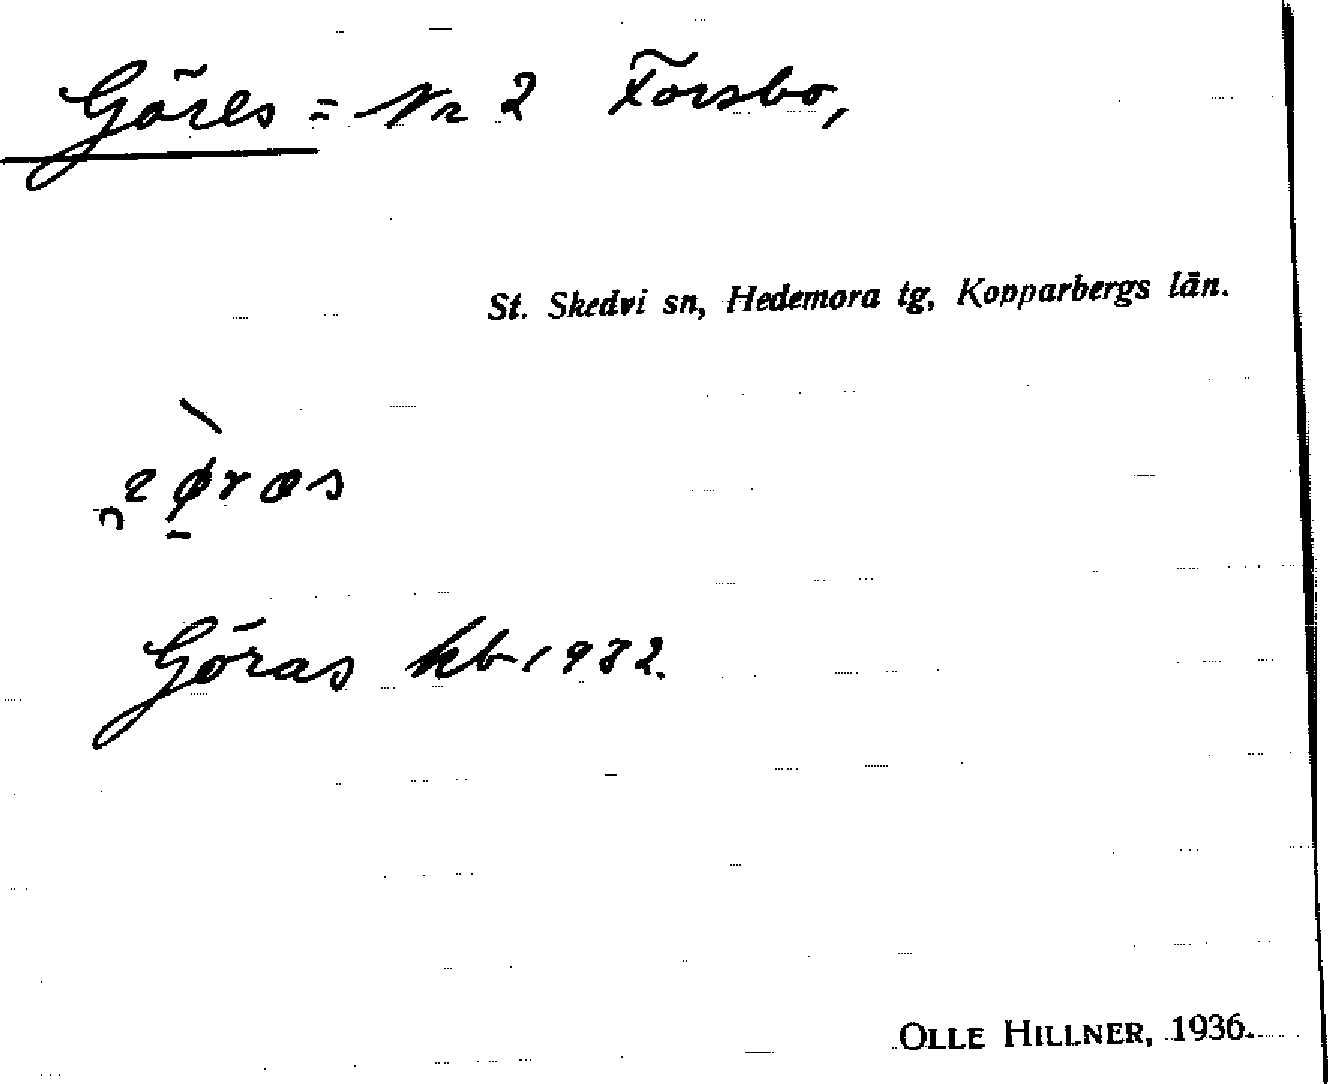 Göres = Nr 2 Forsbo,
St. Skedvi sn, Hedemora tg, Kopparbergs län.
Göras kb 1932.
OLLE HILLNER, 1936.